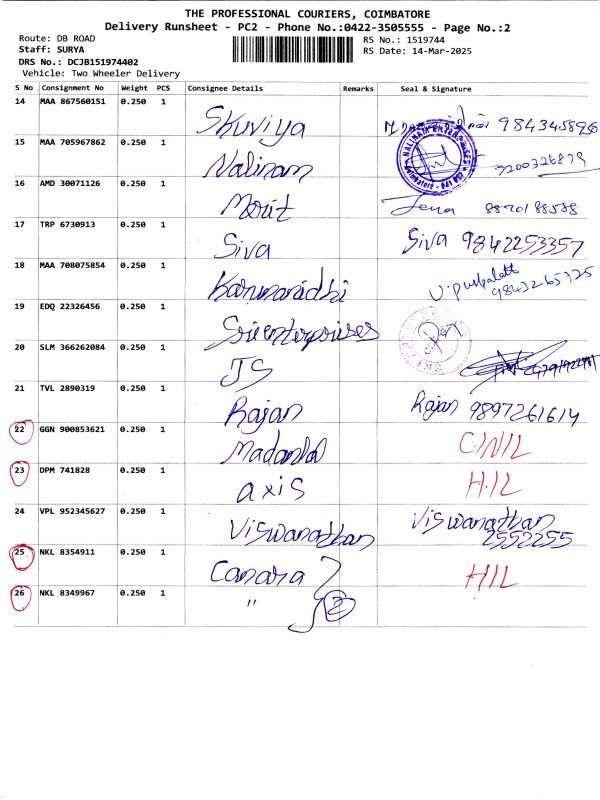 THE PROFESSIONAL COURIERS, COIMBATORE
Delivery Runsheet - PC2 - Phone No.:0422-3505555 - Page No.:2
Route: DB ROAD
RS No.: 1519744
Staff: SURYA
RS Date: 14-Mar-2025
DRS No.: DCJB151974402
Vehicle: Two Wheeler Delivery
S No Consignment No Weight PCS Consignee Details Remarks Seal & Signature
14 MAA 867560151 0.250 1 Skuviya
15 MAA 705967862 0.250 1 Nalinam 7200326879
16 AMD 30071126 0.250 1 Morit Jena 8870188588
17 TRP 6730913 0.250 1 Siva Siva 9842253357
18 MAA 708075854 0.250 1 Karunanidhi 9843265325
19 EDQ 22326456 0.250 1 Sri enterprises
20 SLM 366262084 0.250 1 JS
21 TVL 2890319 0.250 1 Rajan Rajan 9897261614
22 GGN 900853621 0.250 1 Madanlal C/N/L
23 DPM 741828 0.250 1 axis H/L
24 VPL 952345627 0.250 1 Viswanathan Viswanathan
2552255
25 NKL 8354911 0.250 1 Canara H/L
26 NKL 8349967 0.250 1 " 2